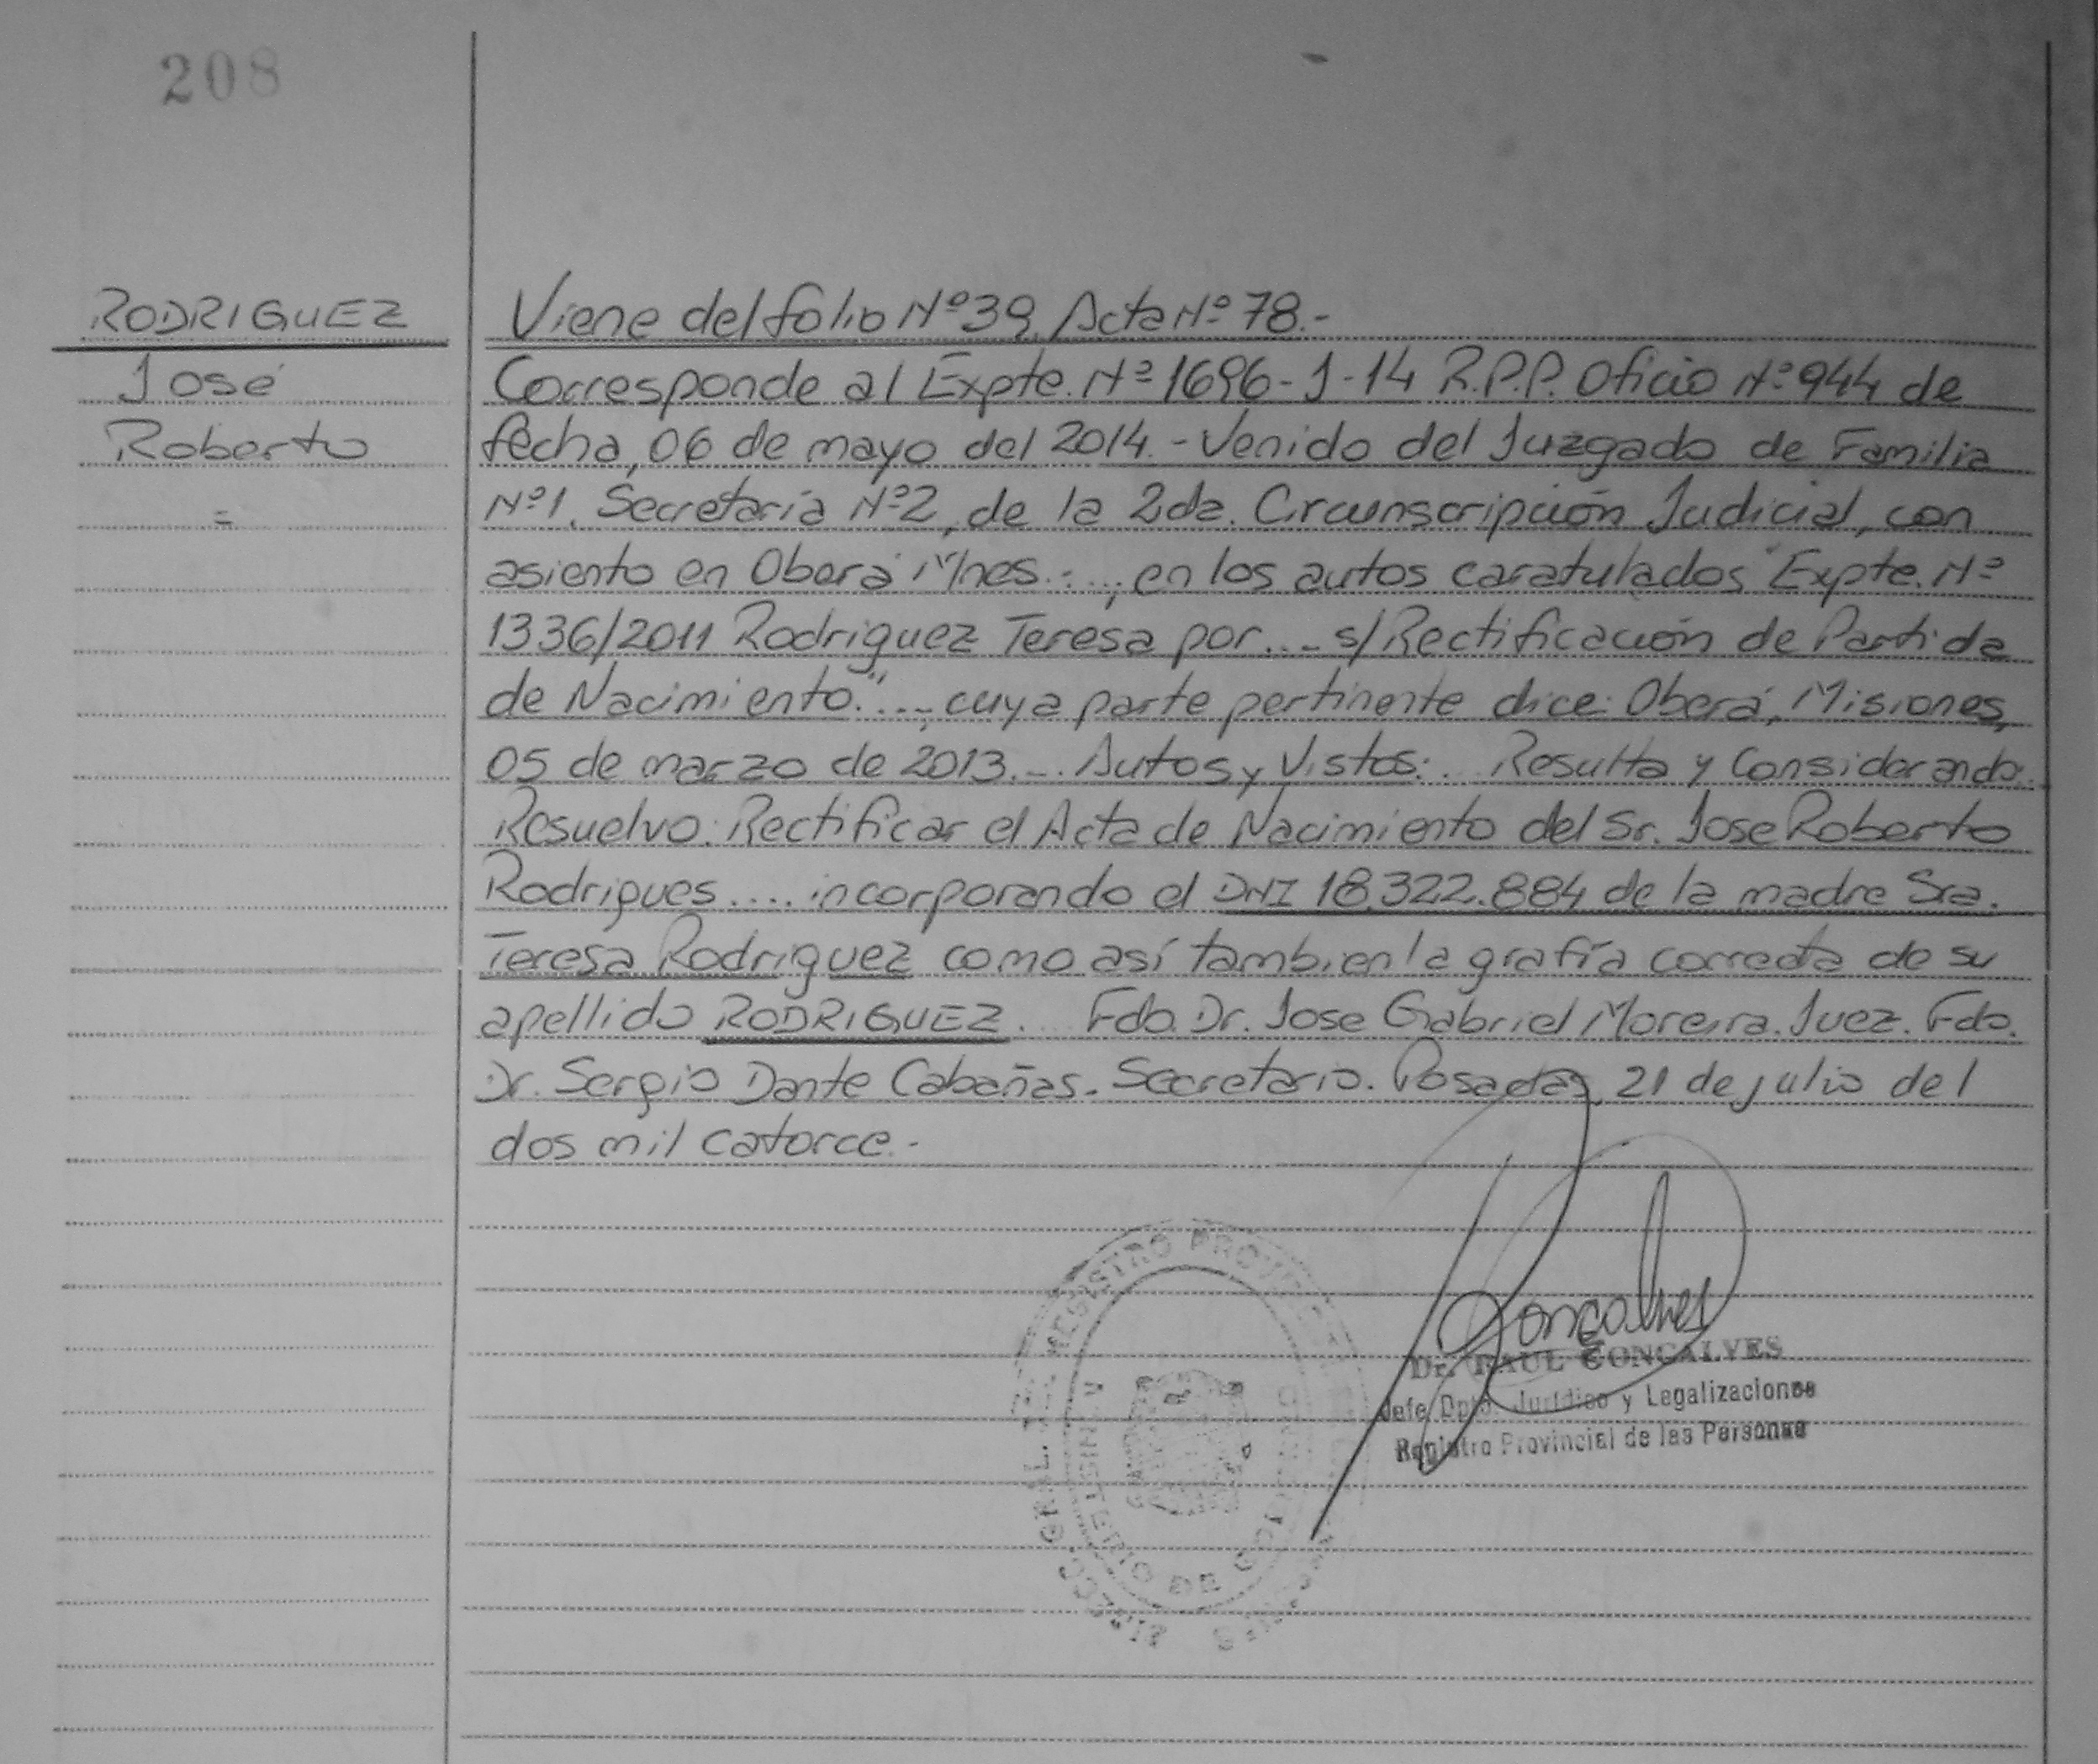 208
RODRIGUEZ
José
Roberto
=
Viene del folio Nº 39. Acta Nº 78.-
Corresponde al Expte. Nº 1696-J-14 R.P.P. Oficio Nº 944 de
fecha, 06 de mayo del 2014.- Venido del Juzgado de Familia
Nº1. Secretaría Nº2, de la 2da. Circunscripción Judicial, con
asiento en Oberá Mnes.-..., en los autos caratulados "Expte. Nº
1336/2011 Rodriguez Teresa por...- s/Rectificación de Partida
de Nacimiento."..., cuya parte pertinente dice: Oberá, Misiones,
05 de marzo de 2013.-. Autos y Vistos:.. Resulta y Considerando:.
Resuelvo: Rectificar el Acta de Nacimiento del Sr. Jose Roberto
Rodrigues.... incorporando el DNI 18.322.884 de la madre Sra.
Teresa Rodriguez como así tambien la grafía correcta de su
apellido RODRIGUEZ... Fdo. Dr. Jose Gabriel Moreira. Juez. Fdo.
Dr. Sergio Dante Cabañas. Secretario. Posadas, 21 de julio del
dos mil catorce.-
Goncalves
Dr. RAUL GONCALVES
Jefe Dpto. Jurídico y Legalizaciones
Registro Provincial de las Personas
REGISTRO
MINISTERIO DE